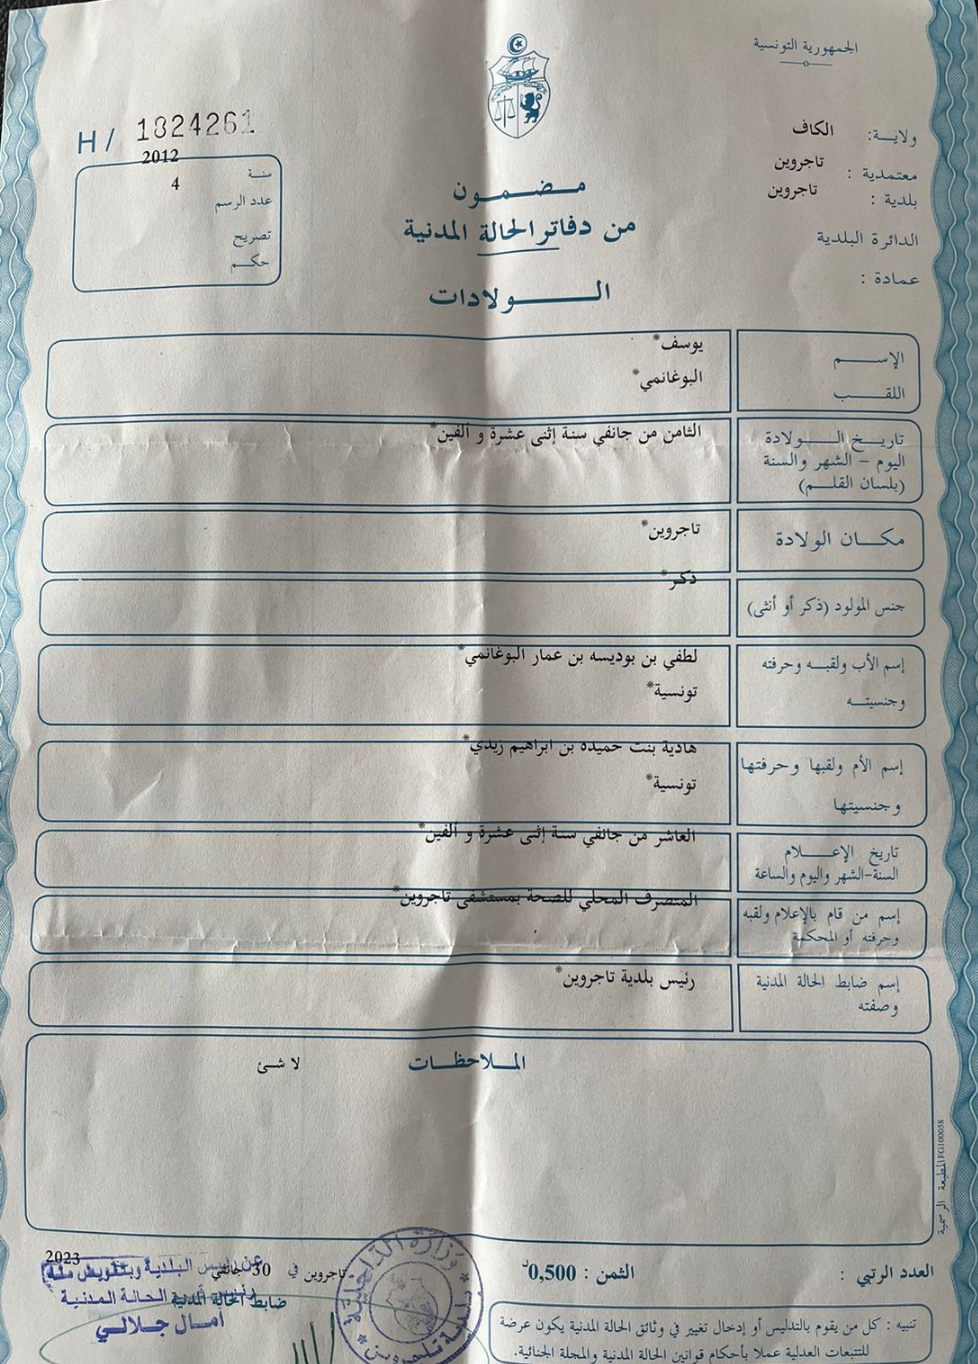 الجمهورية التونسية
ولاية: الكاف
معتمدية : تاجروين
بلدية : تاجروين
الدائرة البلدية
عمادة :
H/ 1824261
سنة 2012
عدد الرسم 4
تصريح
حكم
مضمون
من دفاتر الحالة المدنية
الولادات
الإسم يوسف*
اللقب البوغانمي*
تاريخ الولادة الثامن من جانفي سنة إثنى عشرة و ألفين*
اليوم – الشهر والسنة
(بلسان القلم)
مكان الولادة تاجروين*
جنس المولود (ذكر أو أنثى) ذكر*
إسم الأب ولقبه وحرفته لطفي بن بوديسه بن عمار البوغانمي*
وجنسيته تونسية*
إسم الأم ولقبها وحرفتها هادية بنت حميدة بن ابراهيم زيدي*
وجنسيتها تونسية*
تاريخ الإعلام العاشر من جانفي سنة إثنى عشرة و ألفين*
السنة-الشهر واليوم والساعة
إسم من قام بالإعلام ولقبه المتصرف المحلي للصحة بمستشفى تاجروين*
وحرفته أو المحكمة
إسم ضابط الحالة المدنية رئيس بلدية تاجروين*
وصفته
الملاحظات لا شئ
المطبعة الرسمية FG100058
العدد الرتبي :
الثمن : 0,500د
تاجروين في 30 جانفي 2023
ضابط الحالة المدنية
عن رئيس البلدية وبتفويض منه
الحالة المدنية
أمال جلالي
وزارة الداخلية
بلدية تاجروين
تنبيه : كل من يقوم بالتدليس أو إدخال تغيير في وثائق الحالة المدنية يكون عرضة
للتتبعات العدلية عملا بأحكام قوانين الحالة المدنية والمجلة الجنائية.